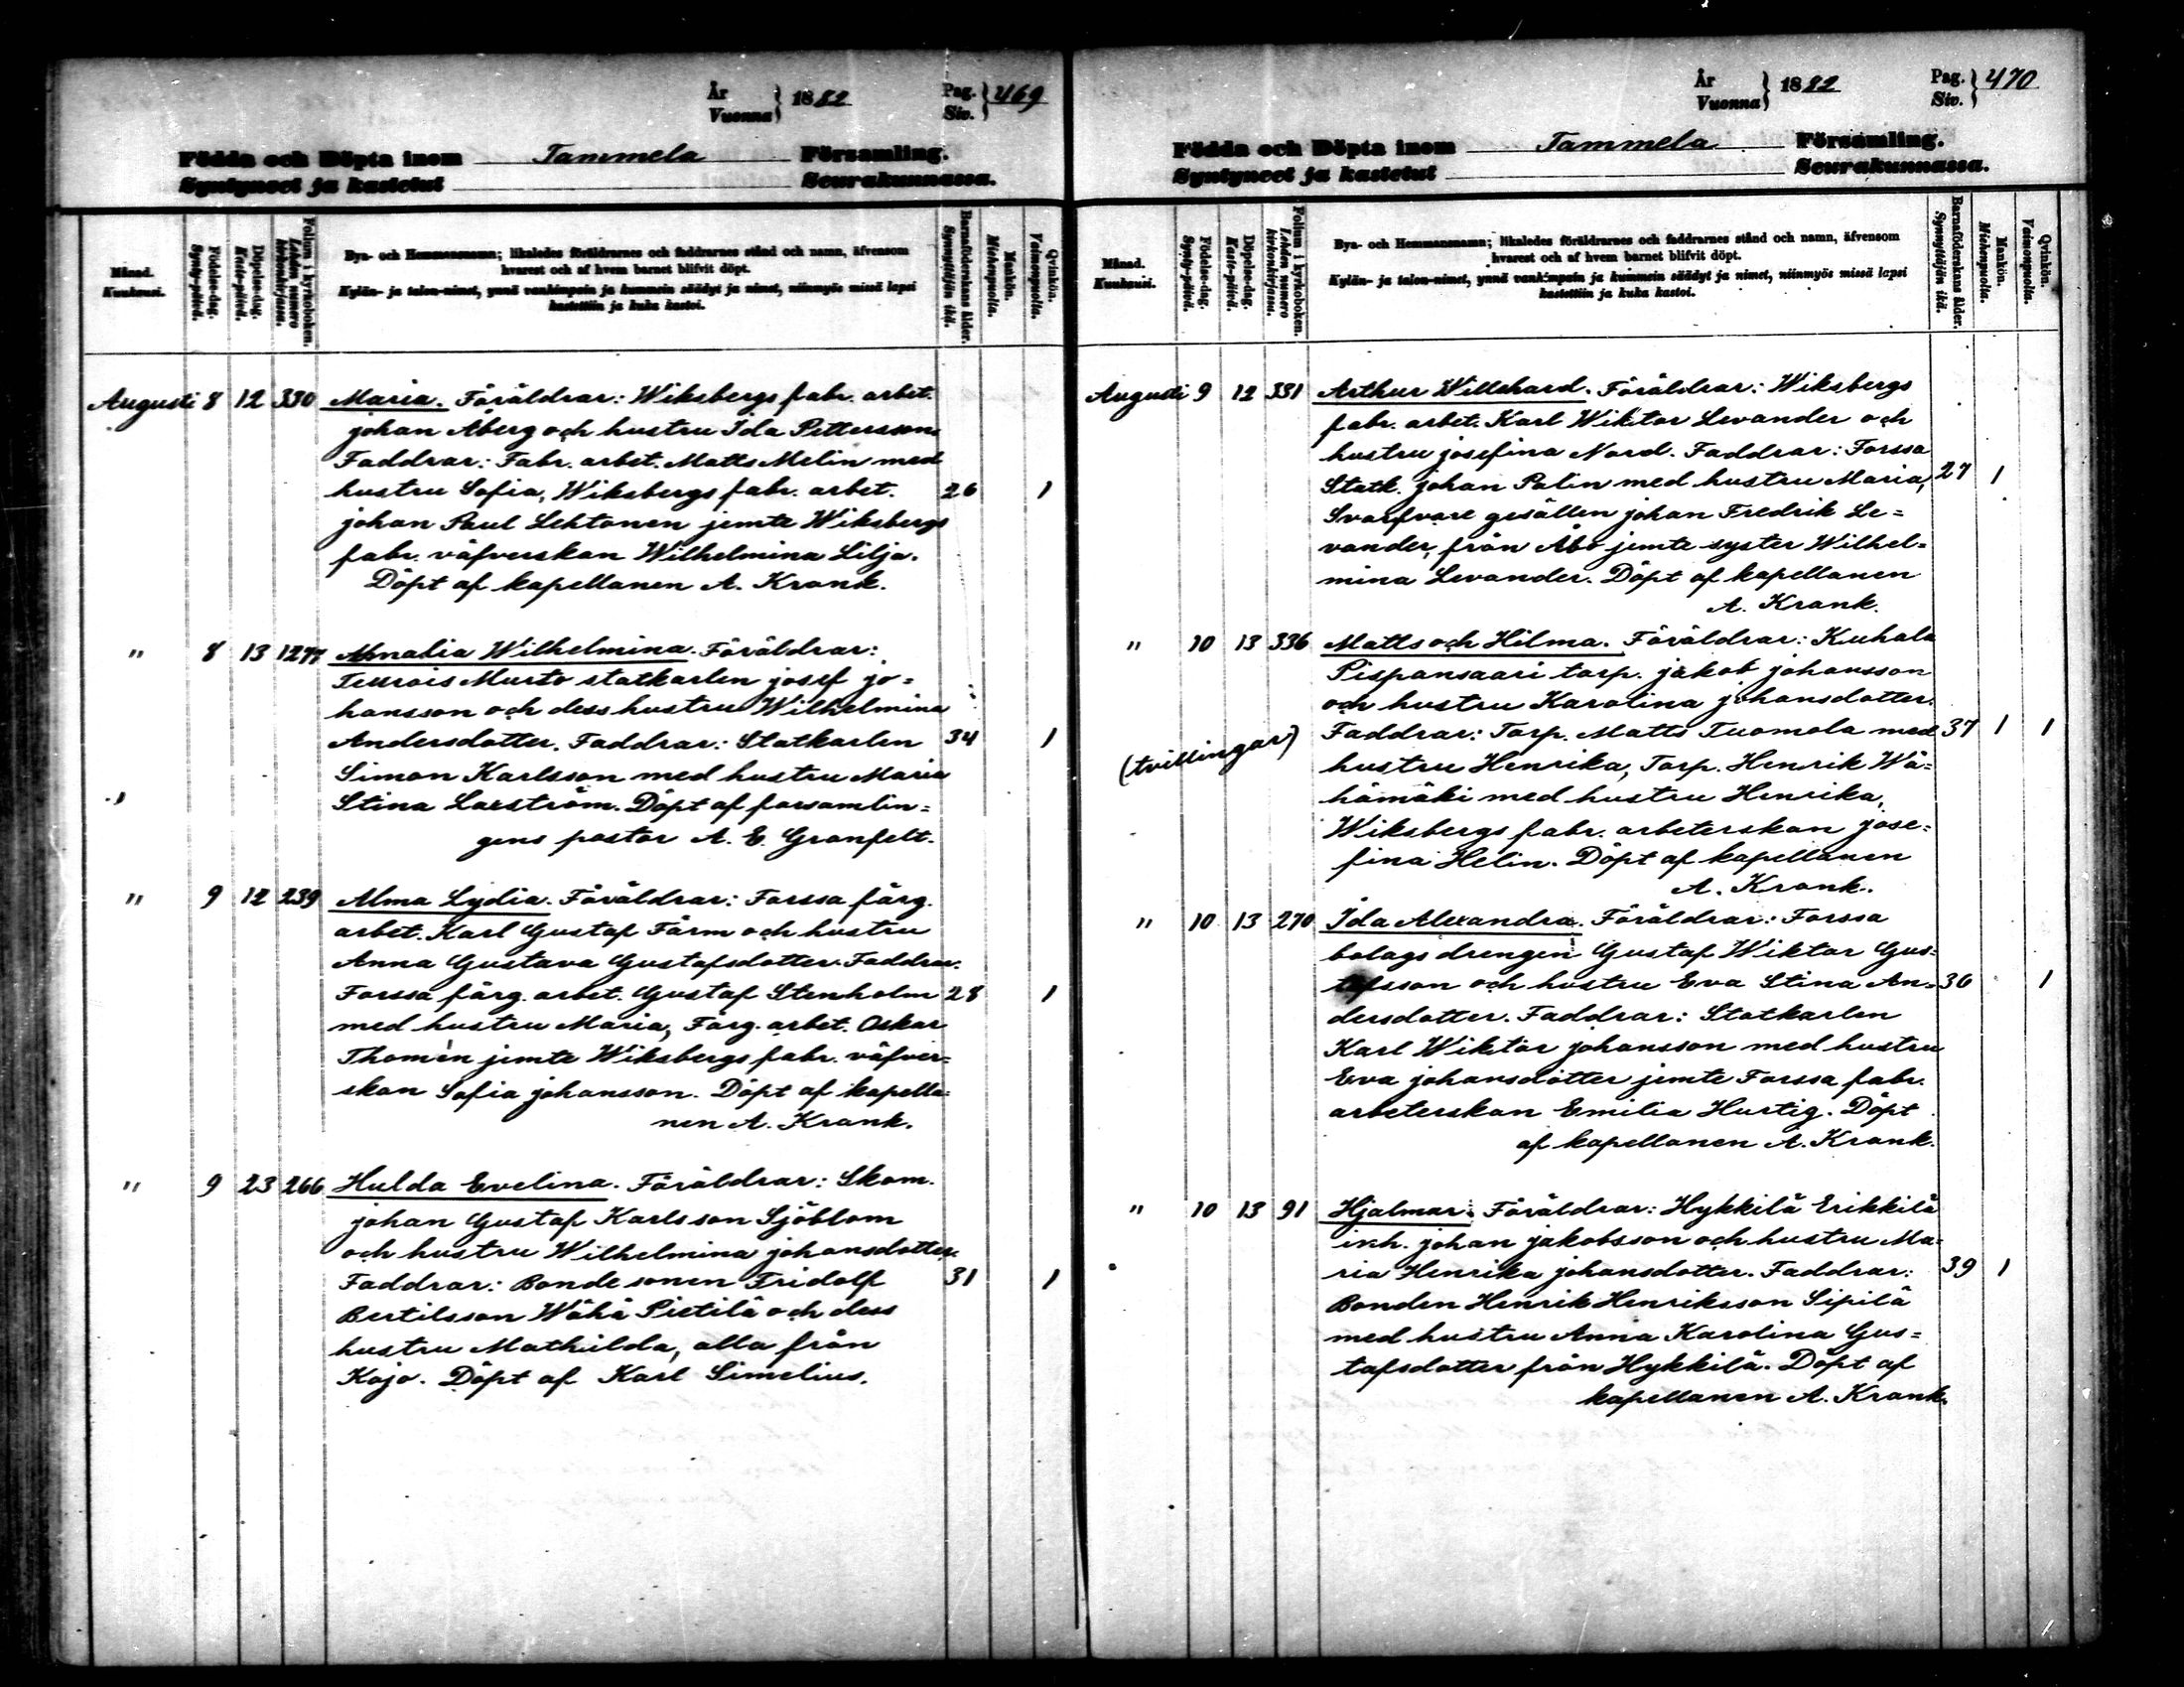 År
Vuonna } 1882
Pag.
Siv. } 469
Födda och Döpta inom Tammela Församling.
Syntyneet ja kastetut Seurakunnassa.
Månad.
Kuukausi.
Födelse-dag.
Synty-päivä.
Döpelse-dag.
Kaste-päivä.
Folium i kyrkoboken.
Lehden numero kirkonkirjassa.
Bya- och Hemmansnamn; likaledes föräldrarnes och faddrarnes stånd och namn, äfvensom
hvarest och af hvem barnet blifvit döpt.
Kylän- ja talon-nimet, ynnä vanhimpain ja kummein säädyt ja nimet, niinmyös missä lapsi
kastettiin ja kuka kastoi.
Barnaföderskans ålder.
Synnyttäjän ikä.
Mankön.
Miehenpuolia.
Qvinkön.
Vaimonpuolia.
Augusti 8 12 330 Maria. Föräldrar: Wiksbergs fabr. arbet.
johan Åberg och hustru Ida Pettersson.
Faddrar: Fabr. arbet. Matts Melin med
hustru Sofia, Wiksbergs fabr. arbet. 26 1
johan Paul Lehtonen jemte Wiksbergs
fabr. väfverskan Wilhelmina Lilja.
Döpt af kapellanen A. Krank.
" 8 13 1277 Amalia Wilhelmina. Föräldrar:
Teurois Murto statkarlen josef jo=
hansson och dess hustru Wilhelmina
Andersdotter. Faddrar: Statkarlen 34 1
Simon Karlsson med hustru Maria
Stina Laxström. Döpt af församlin=
gens pastor A. E. Granfelt.
" 9 12 239 Alma Lydia. Föräldrar: Forssa färg.
arbet. Karl Gustaf Färm och hustru
Anna Gustava Gustafsdotter. Faddrar.
Forssa färg. arbet. Gustaf Stenholm 28 1
med hustru Maria, Färg. arbet. Oskar
Thomén jemte Wiksbergs fabr. väfver=
skan Sofia johansson. Döpt af kapella=
nen A. Krank.
" 9 23 266 Hulda Evelina. Föräldrar: Skom.
johan Gustaf Karlsson Sjöblom
och hustru Wilhelmina johansdotter.
Faddrar: Bonde sonen Fridolf 31 1
Bertilsson Wähä Pietilä och dess
hustru Mathilda, alla från
Kojo. Döpt af Karl Simelius.
År
Vuonna } 1882
Pag.
Siv. } 470
Födda och Döpta inom Tammela Församling.
Syntyneet ja kastetut Seurakunnassa.
Månad.
Kuukausi.
Födelse-dag.
Synty-päivä.
Döpelse-dag.
Kaste-päivä.
Folium i kyrkoboken.
Lehden numero kirkonkirjassa.
Bya- och Hemmansnamn; likaledes föräldrarnes och faddrarnes stånd och namn, äfvensom
hvarest och af hvem barnet blifvit döpt.
Kylän- ja talon-nimet, ynnä vanhimpain ja kummein säädyt ja nimet, niinmyös missä lapsi
kastettiin ja kuka kastoi.
Barnaföderskans ålder.
Synnyttäjän ikä.
Mankön.
Miehenpuolia.
Qvinkön.
Vaimonpuolia.
Augusti 9 12 331 Arthur Willehard. Föräldrar: Wiksbergs
fabr. arbet. Karl Wiktor Levander och
hustru josefina Nord. Faddrar: Forssa
Statk. johan Palin med hustru Maria, 27 1
Svarfvare gesällen johan Fredrik Le=
vander, från Åbo jemte syster Wilhel=
mina Levander. Döpt af kapellanen
A. Krank.
" 10 13 336 Matts och Hilma. Föräldrar: Kuhala
Pispansaari torp. jakob johansson
och hustru Karolina johansdotter.
(tvillingar) Faddrar: Torp. Matts Tuomola med 37 1 1
hustru Henrika, Torp. Henrik Wä=
hämäki med hustru Henrika,
Wiksbergs fabr. arbeterskan jose=
fina Helin. Döpt af kapellanen
A. Krank.
" 10 13 270 Ida Alexandra. Föräldrar: Forssa
bolags drengen Gustaf Wiktor Gus=
tafsson och hustru Eva Stina An= 36 1
dersdotter. Faddrar: Statkarlen
Karl Wiktor johansson med hustru
Eva johansdotter jemte Forssa fabr.
arbeterskan Emilia Hurtig. Döpt
af kapellanen A. Krank.
" 10 13 91 Hjalmar. Föräldrar: Hykkilä Erikkilä
inh. johan jakobsson och hustru Ma=
ria Henrika johansdotter. Faddrar: 39 1
Bonden Henrik Henriksson Sipilä
med hustru Anna Karolina Gus=
tafsdotter från Hykkilä. Döpt af
kapellanen A. Krank.